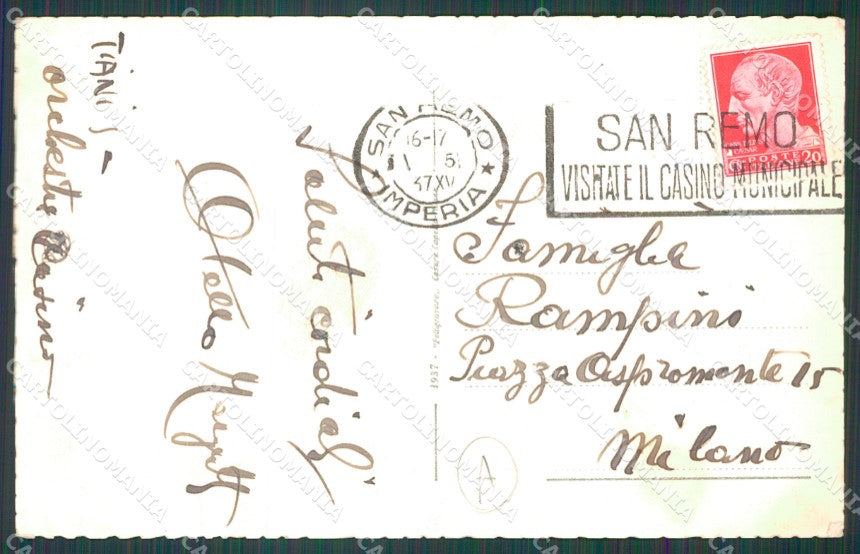 TÀNIS -
orchestra Casino
Saluti cordiali
Otello
SAN REMO
16-17
37 XV
IMPERIA
SAN REMO
VISITATE IL CASINO MUNICIPALE
POSTE
20
Famiglia
Rampini
Piazza Aspromonte 15
Milano
1937 -
A
CARTOLINOMANIA